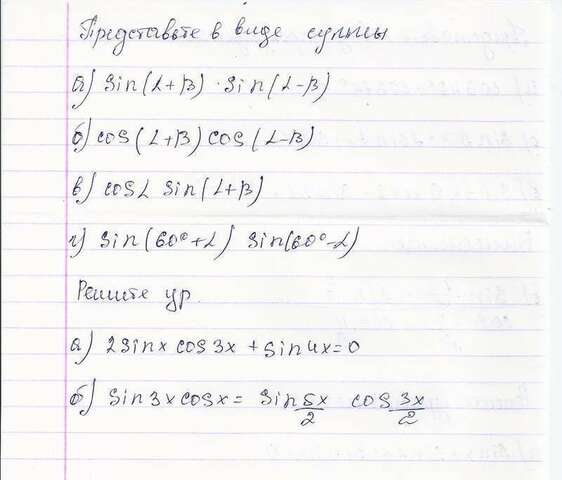 Представьте в виде суммы
а) sin(α+β) · sin(α-β)
б) cos(α+β) cos(α-β)
в) cosα sin(α+β)
г) sin(60°+α) sin(60°-α)
Решите ур.
а) 2sinx cos3x + sin4x=0
б) sin3x cosx = sin 5x/2 cos 3x/2